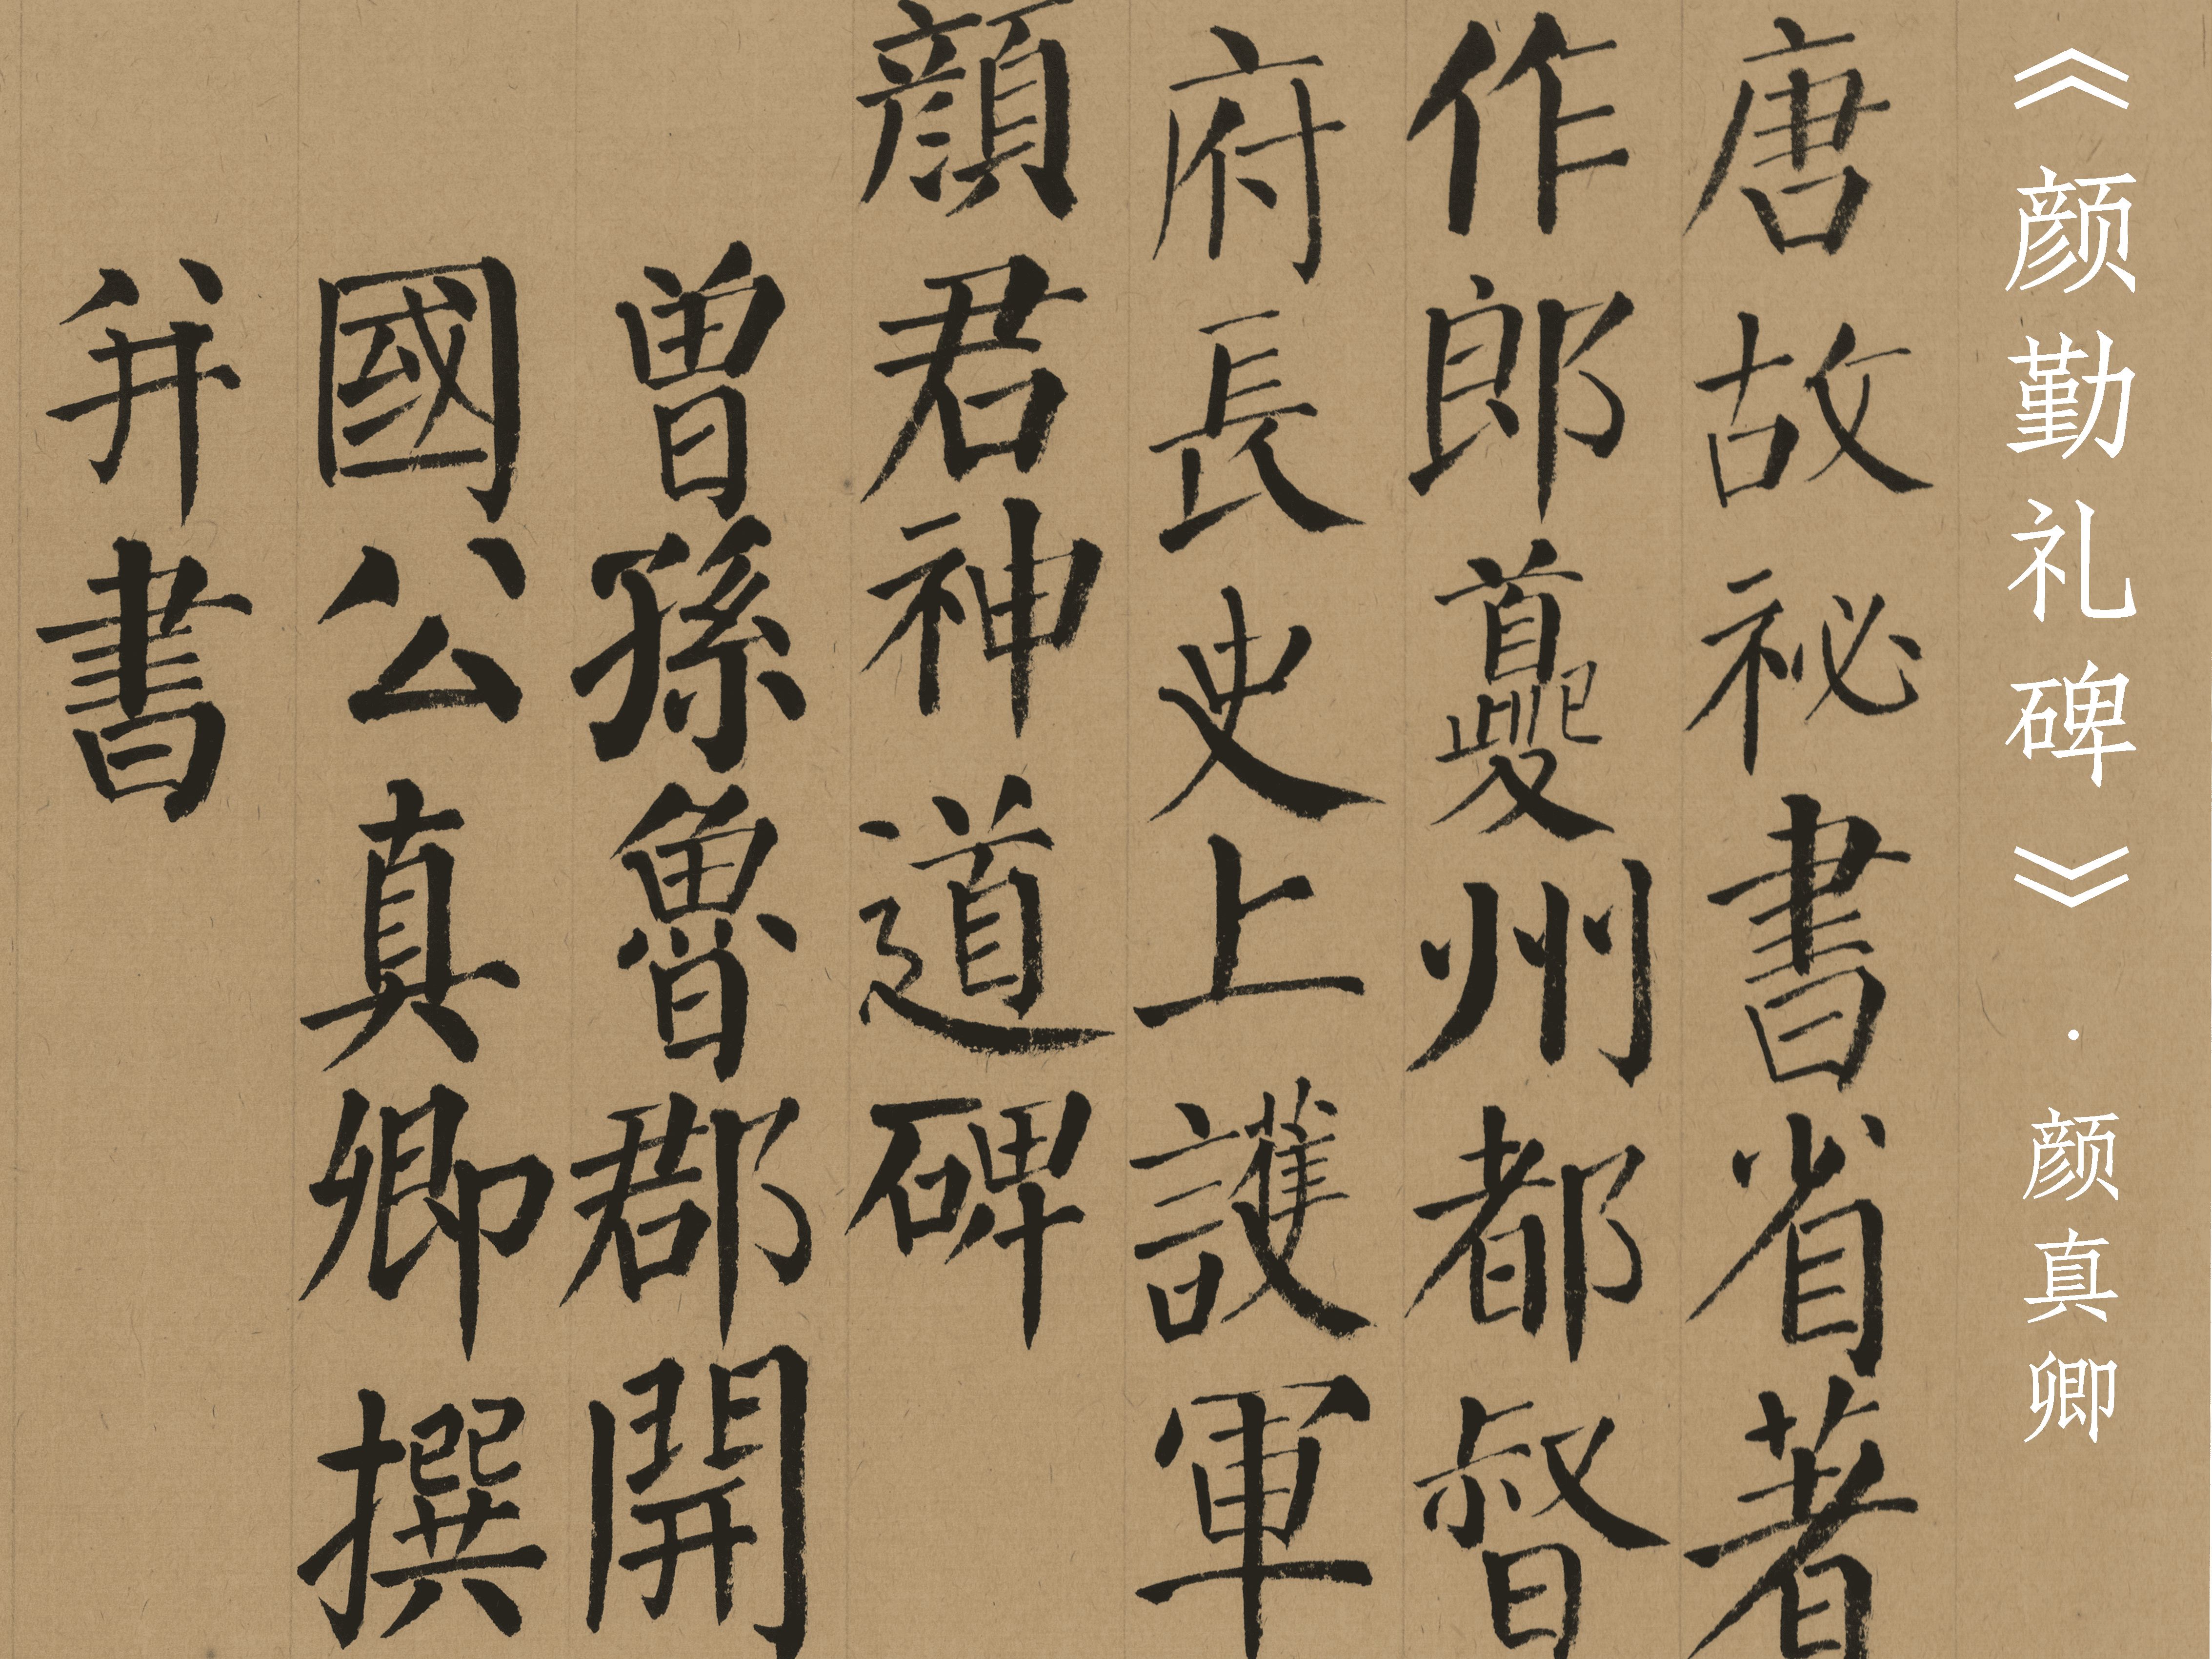 《颜勤礼碑》·颜真卿
唐故祕書省著
作郎夔州都督
府長史上護軍
顔君神道碑
曾孫魯郡開
國公真卿撰
并書